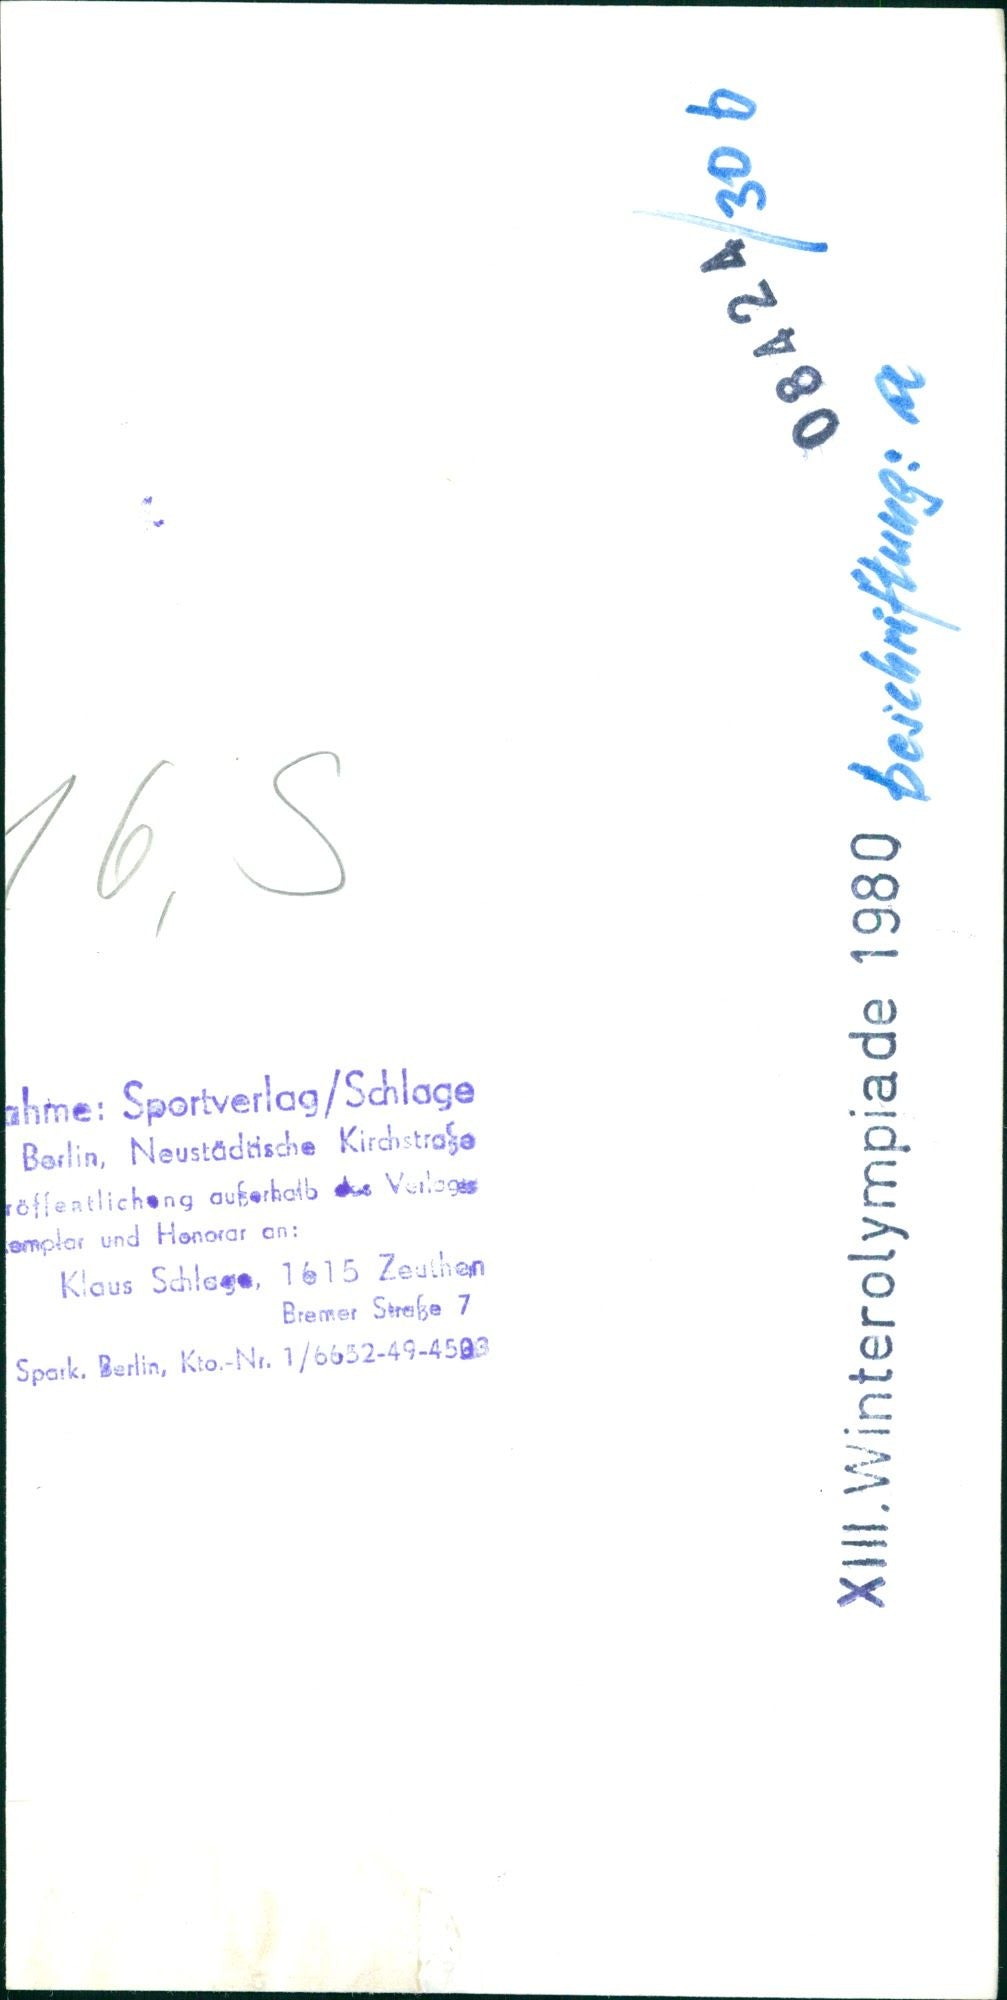 08424/30 b
XIII.Winterolympiade 1980 beschriftung: a
16,5
ahme: Sportverlag/Schlage
Berlin, Neustädtische Kirchstraße
röffentlichung außerhalb des Verlages
emplar und Honorar an:
Klaus Schlage, 1615 Zeuthen
Bremer Straße 7
Spark. Berlin, Kto.-Nr. 1/6652-49-